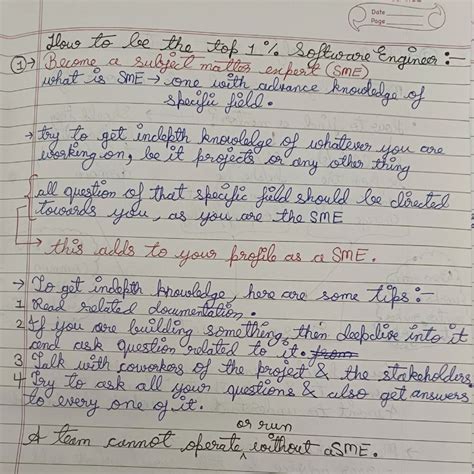 Date
Page
How to be the top 1% Software Engineer :-
1 → Become a subject matter expert (SME)
what is SME → one with advance knowledge of
specific field.
→ try to get indepth knowledge of whatever you are
working on, be it projects or any other thing
all question of that specific field should be directed
towards you, as you are the SME
→ this adds to your profile as a SME.
→ To get indepth knowledge, here are some tips :-
1 Read related documentation.
2 If you are building something, then deepdive into it
and ask question related to it.
3 Talk with coworkers of the project & the stakeholders
4 Try to ask all your questions & also get answers
to every one of it.
or run
A team cannot operate ^ without a SME.